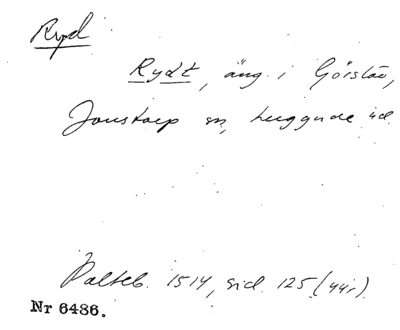 Ryd
Rydt, äng i Görslöv,
Jonstorp sn, Luggude hd.
Palteb. 1514, sid. 125 (44r).
Nr 6486.